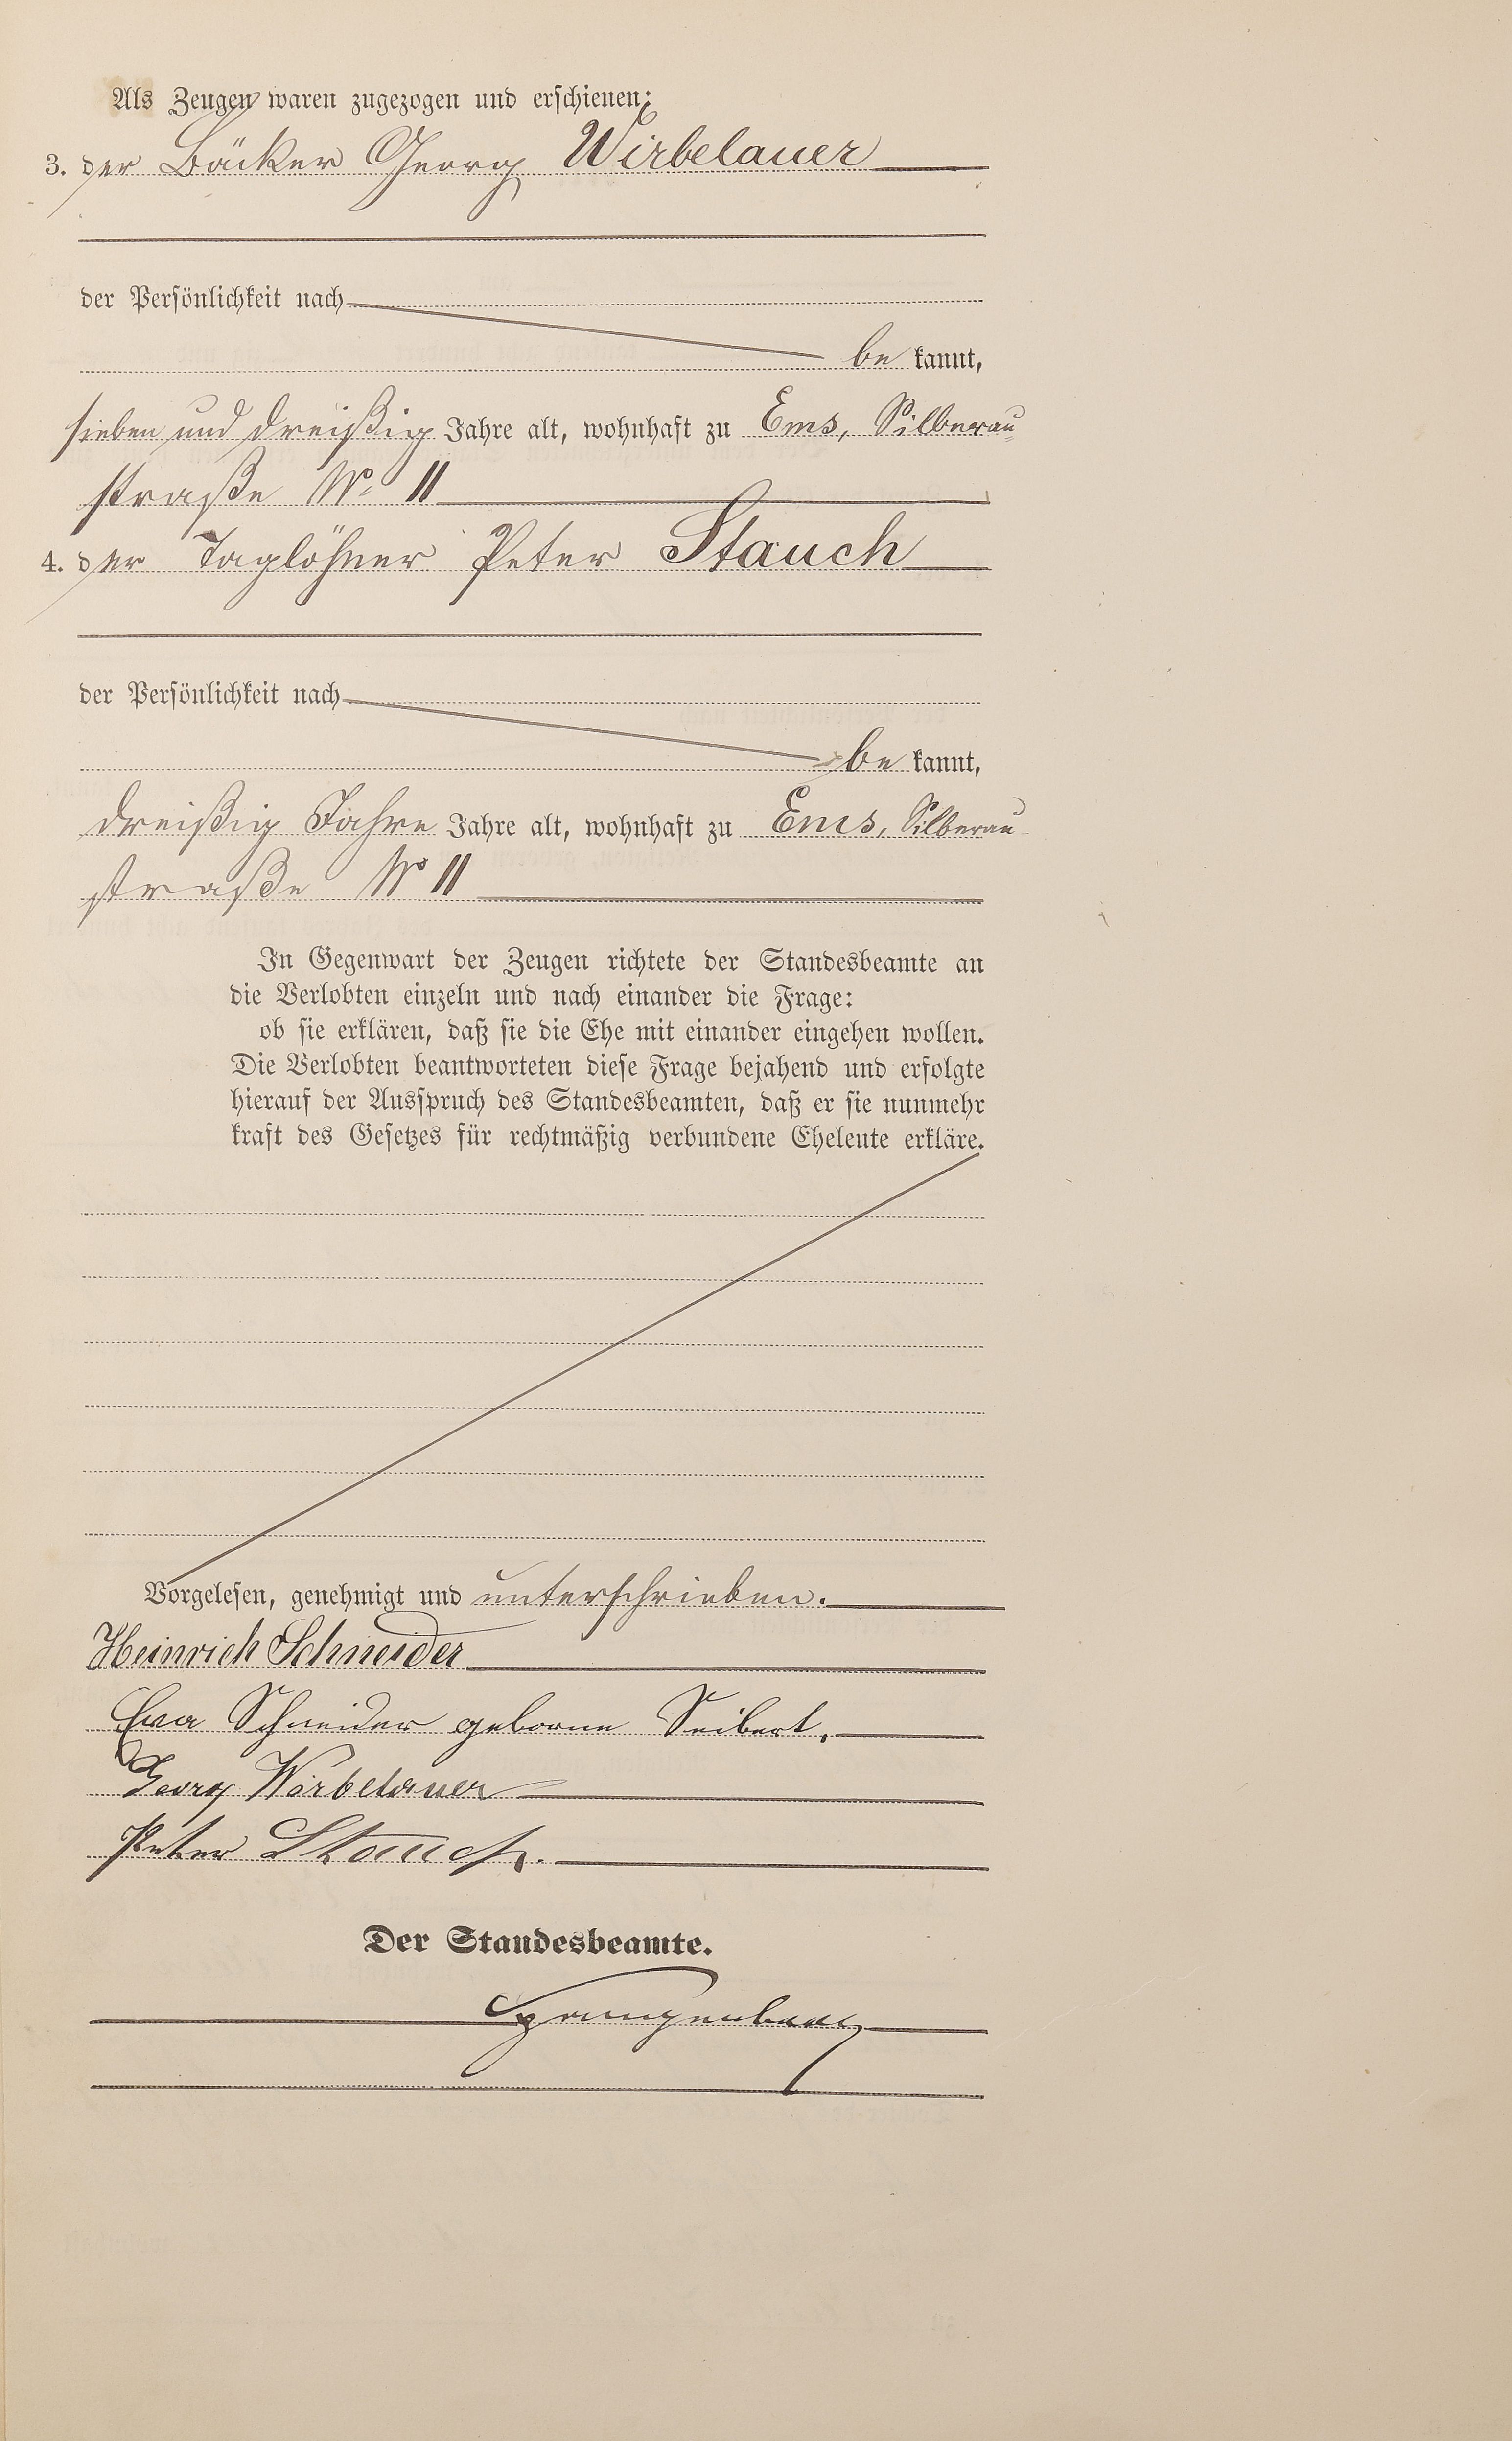 Als Zeugen waren zugezogen und erschienen:
3. der Bäcker Georg Wirbelauer
der Persönlichkeit nach
be kannt,
sieben und dreißig Jahre alt, wohnhaft zu Ems, Silberau
straße No 11
4. der Taglöhner Peter Stauch
der Persönlichkeit nach
be kannt,
dreißig Jahre Jahre alt, wohnhaft zu Ems, Silberau
straße No 11
In Gegenwart der Zeugen richtete der Standesbeamte an
die Verlobten einzeln und nach einander die Frage:
ob sie erklären, daß sie die Ehe mit einander eingehen wollen.
Die Verlobten beantworteten diese Frage bejahend und erfolgte
hierauf der Ausspruch des Standesbeamten, daß er sie nunmehr
kraft des Gesetzes für rechtmäßig verbundene Eheleute erkläre.
Vorgelesen, genehmigt und unterschrieben.
Heinrich Schneider
Eva Schneider geborne Seibert.
Georg Wirbelauer
Peter Stauch.
Der Standesbeamte.
Spangenberg